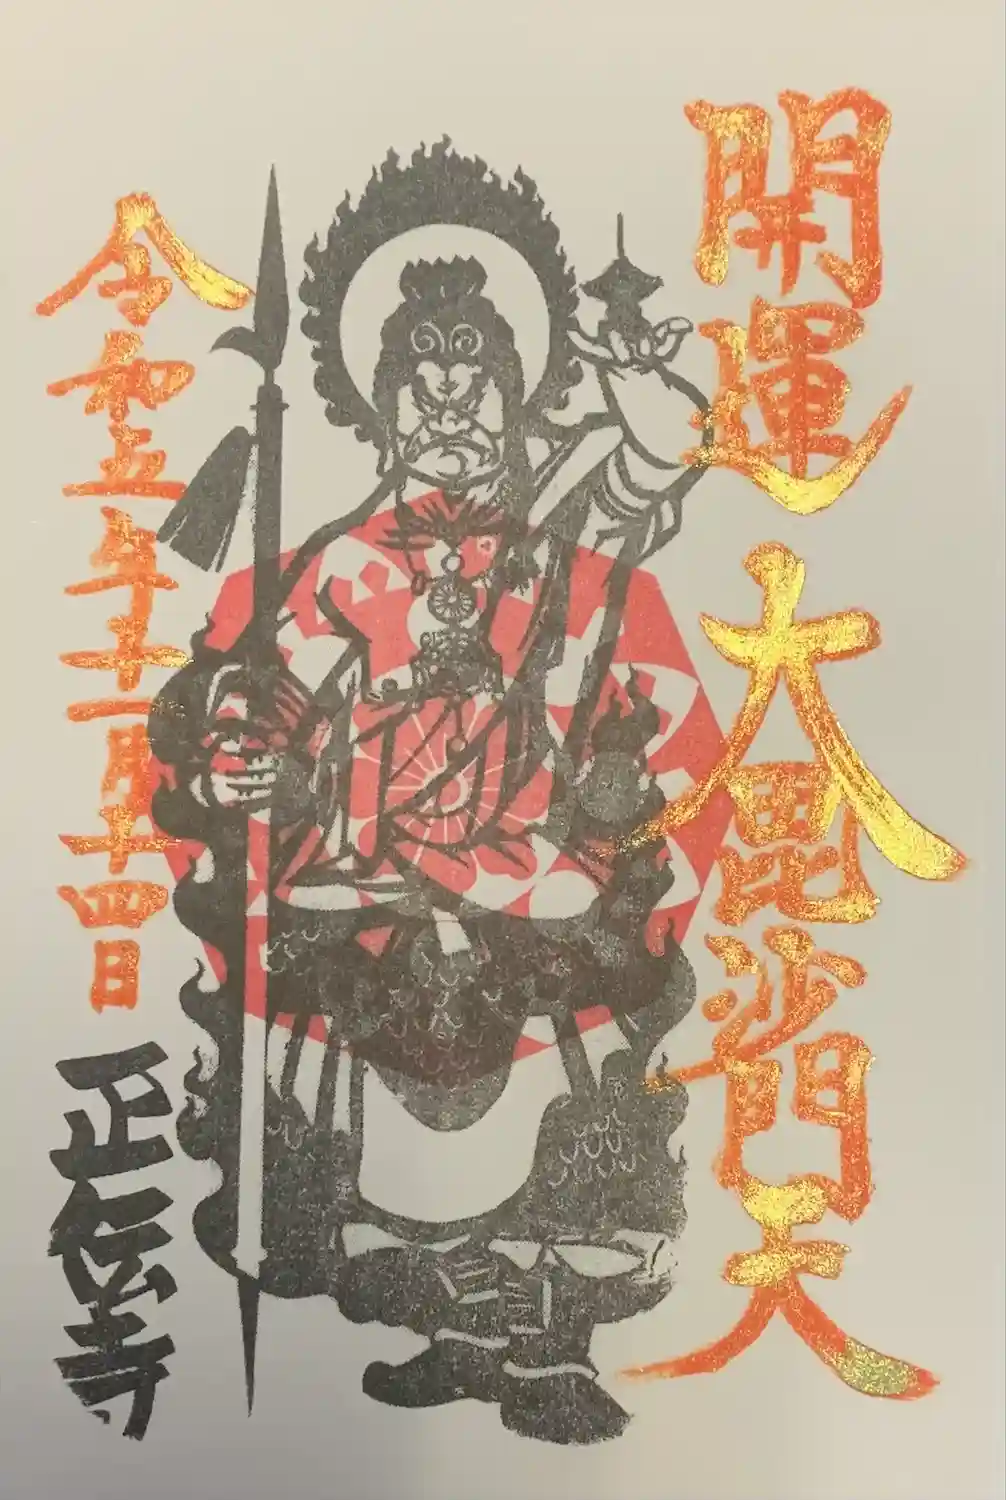 開運大毘沙門天
令和五年十一月十四日
正伝寺